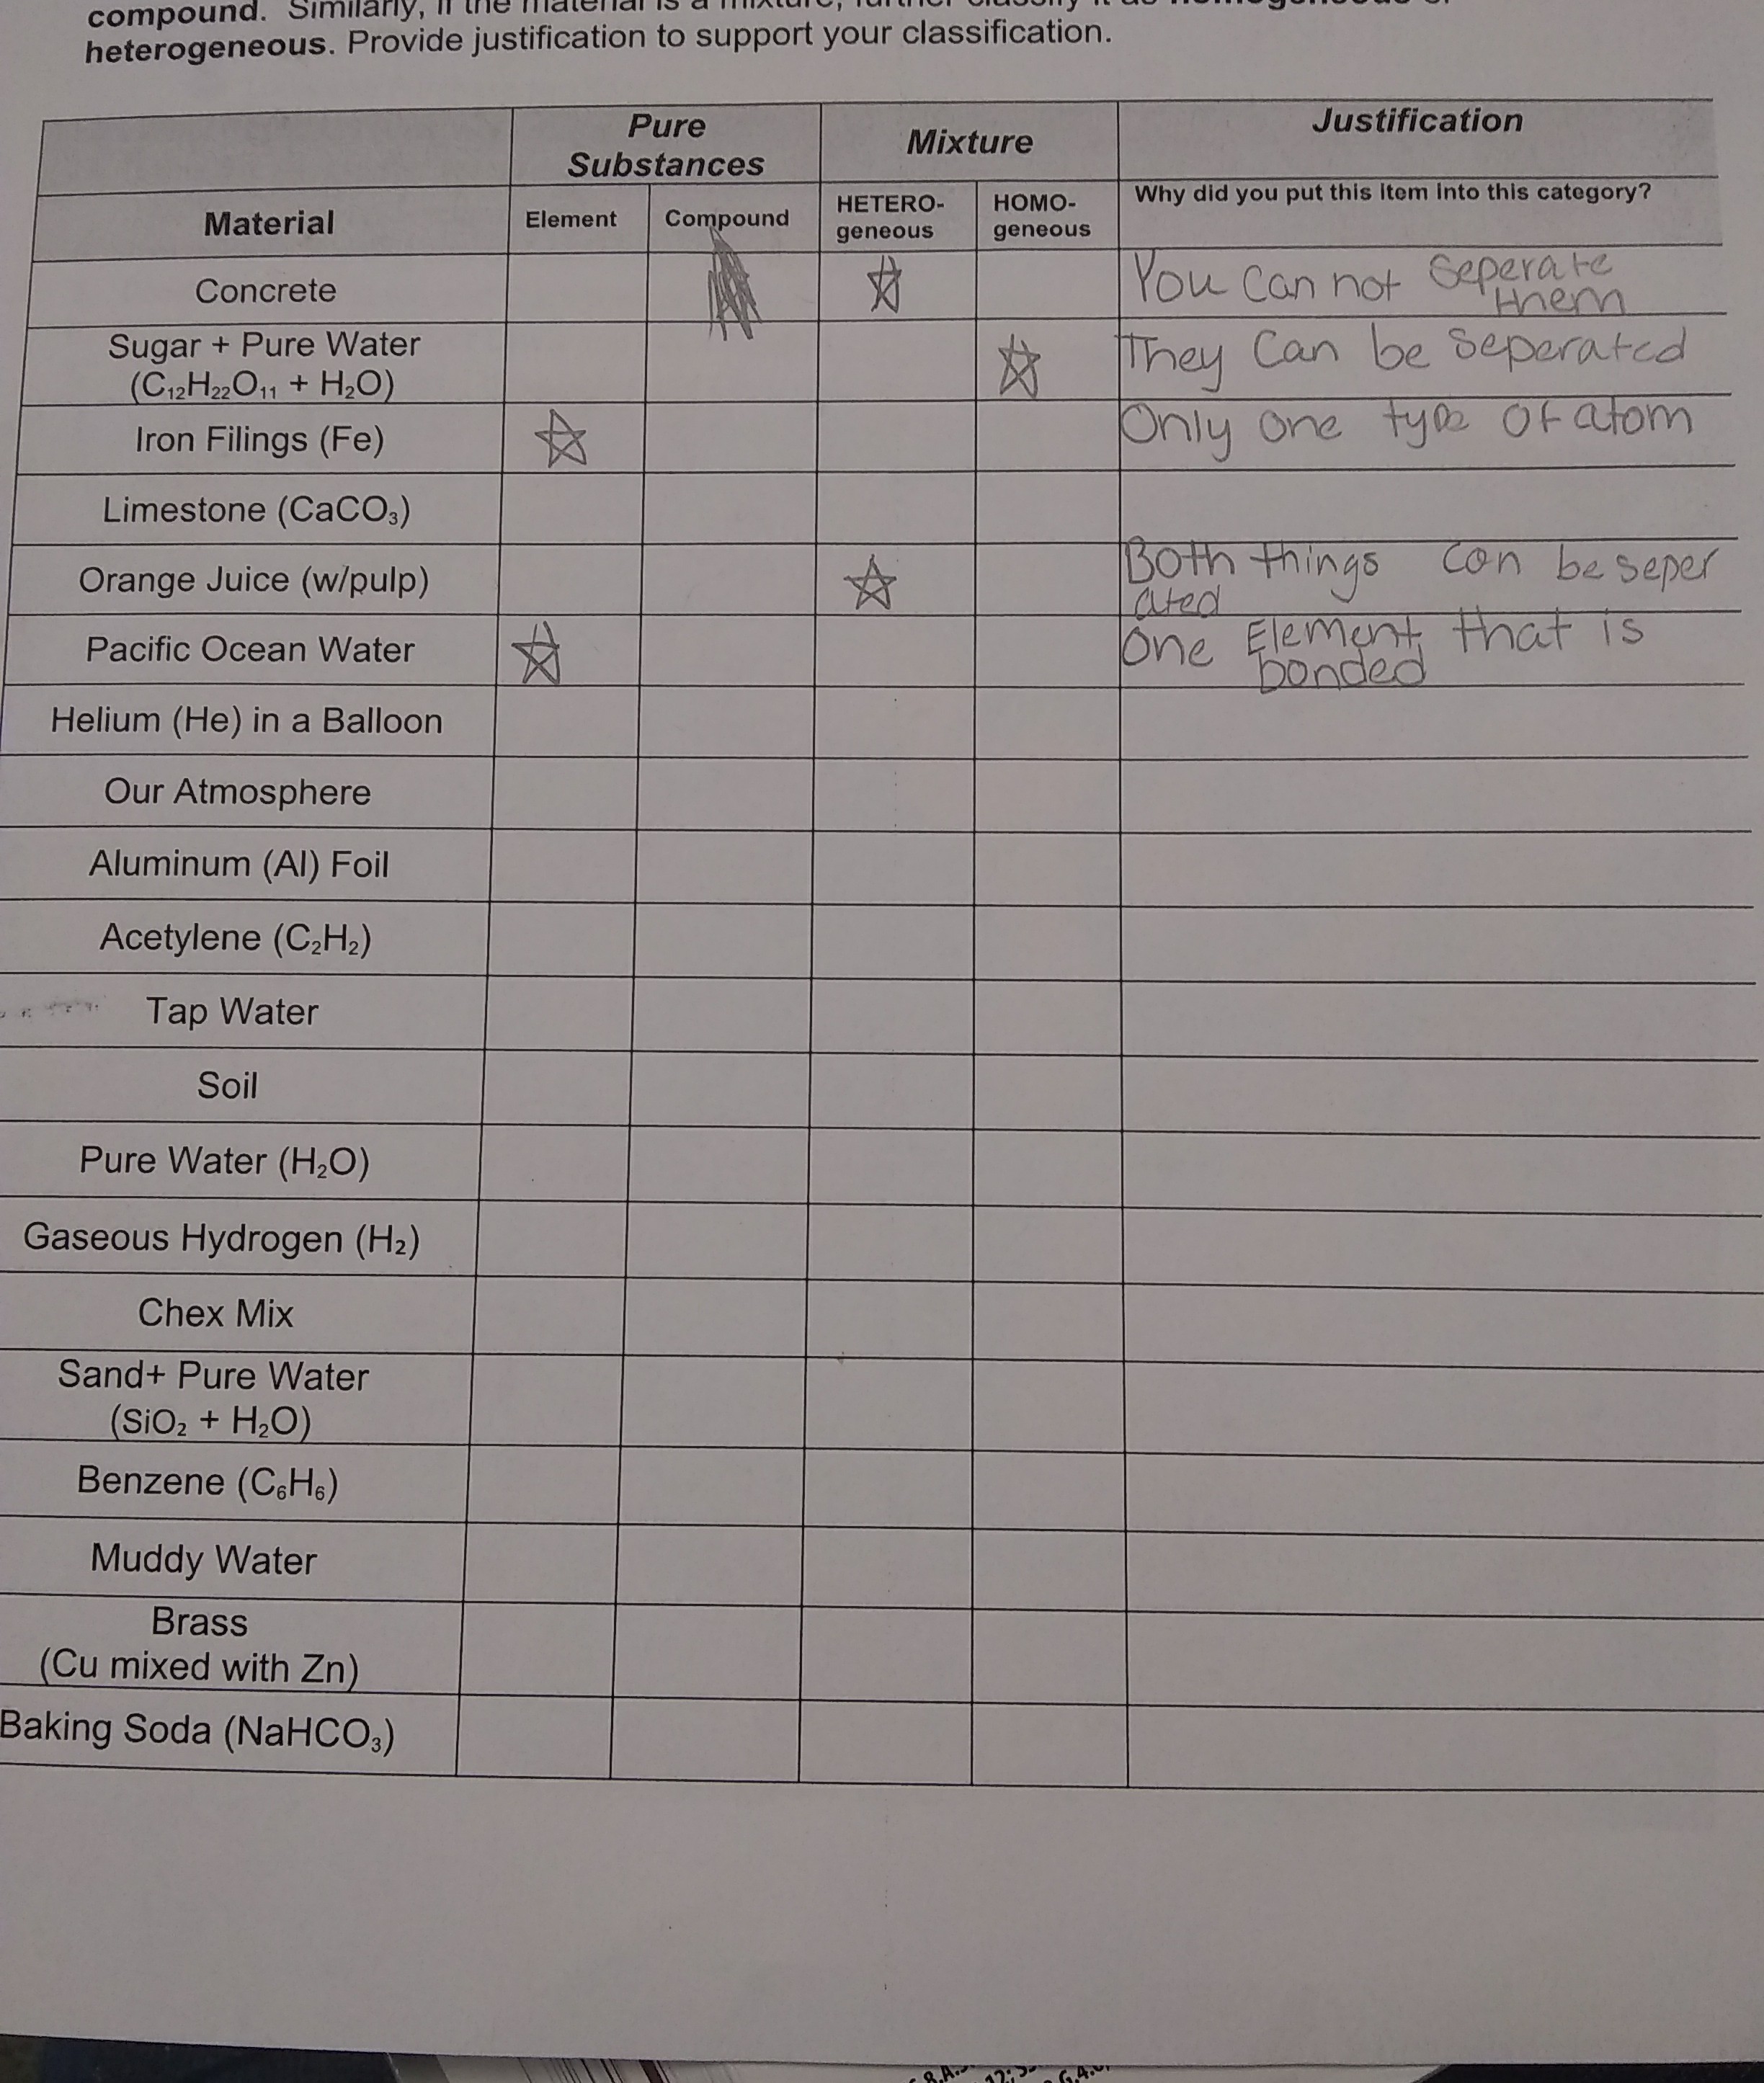 compound. Similarly, if the material is a mixture, further classify it as homogeneous or
heterogeneous. Provide justification to support your classification.
Pure
Substances
Mixture
Justification
Material
Element
Compound
HETERO-
geneous
HOMO-
geneous
Why did you put this item into this category?
Concrete
You can not seperate
them
Sugar + Pure Water
(C₁₂H₂₂O₁₁ + H₂O)
They can be seperated
Iron Filings (Fe)
Only one type of atom
Limestone (CaCO₃)
Orange Juice (w/pulp)
Both things can be seper
ated
Pacific Ocean Water
One Element that is
bonded
Helium (He) in a Balloon
Our Atmosphere
Aluminum (Al) Foil
Acetylene (C₂H₂)
Tap Water
Soil
Pure Water (H₂O)
Gaseous Hydrogen (H₂)
Chex Mix
Sand+ Pure Water
(SiO₂ + H₂O)
Benzene (C₆H₆)
Muddy Water
Brass
(Cu mixed with Zn)
Baking Soda (NaHCO₃)